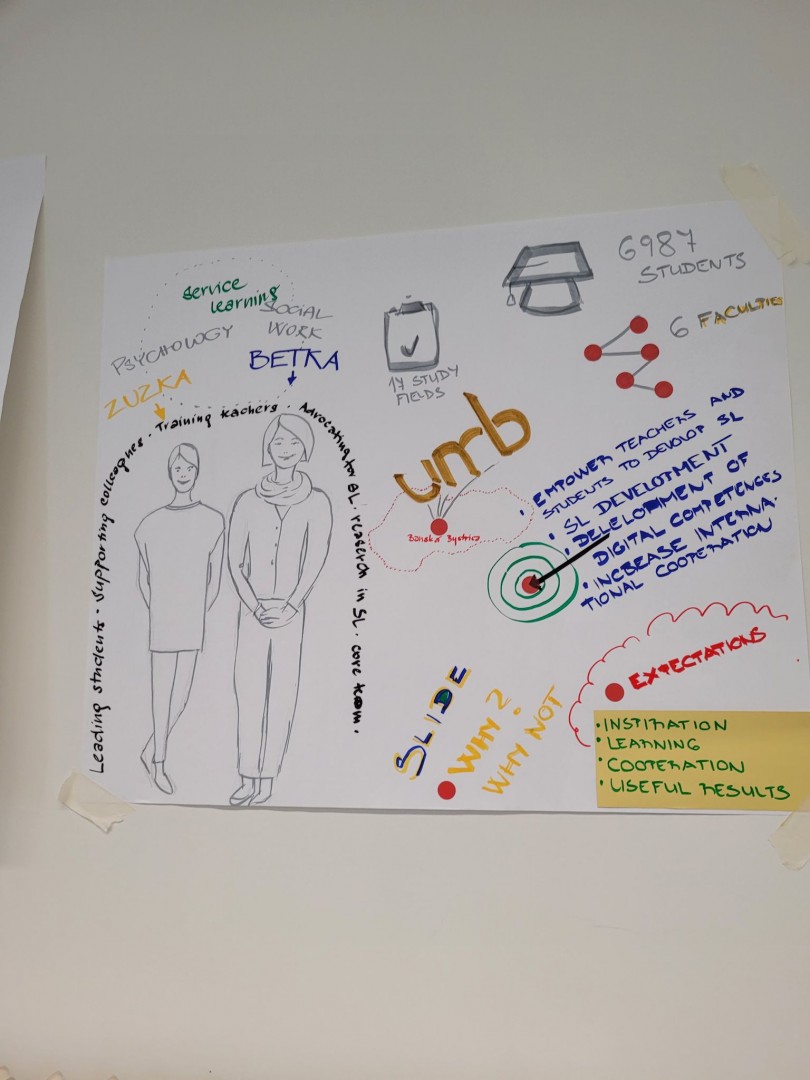 Service
learning
PSYCHOLOGY
SOCIAL
WORK
ZUZKA
BETKA
Leading students · Supporting colleagues · Training teachers · Advocating for SL · research in SL · core team ·
17 STUDY
FIELDS
6987
STUDENTS
6 FACULTIES
umb
Banská Bystrica
· EMPOWER TEACHERS AND
STUDENTS TO DEVELOP SL
· SL DEVELOPMENT
· DEVELOPMENT OF
DIGITAL COMPETENCES
· INCREASE INTERNA-
TIONAL COOPERATION
SLIDE
WHY?
WHY NOT
EXPECTATIONS
· INSPIRATION
· LEARNING
· COOPERATION
· USEFUL RESULTS